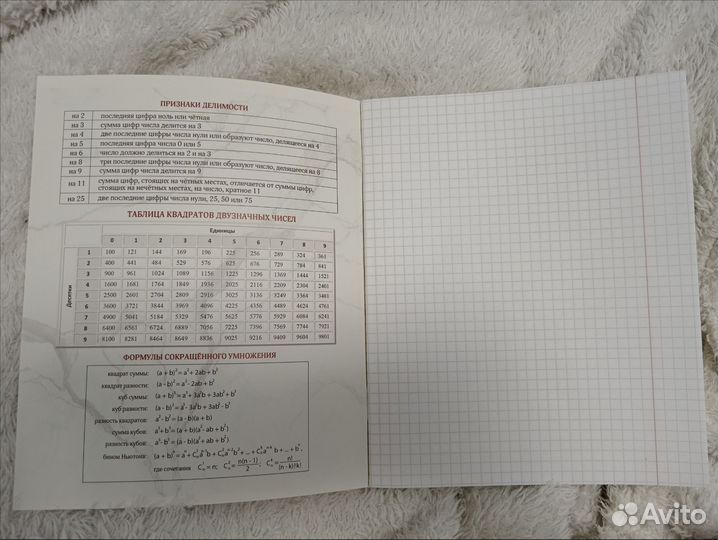 ПРИЗНАКИ ДЕЛИМОСТИ
на 2 последняя цифра ноль или чётная
на 3 сумма цифр числа делится на 3
на 4 две последние цифры числа нули или образуют число, делящееся на 4
на 5 последняя цифра числа 0 или 5
на 6 число должно делиться на 2 и на 3
на 8 три последние цифры числа нули или образуют число, делящееся на 8
на 9 сумма цифр числа делится на 9
на 11 сумма цифр, стоящих на чётных местах, отличается от суммы цифр,
стоящих на нечётных местах, на число, кратное 11
на 25 две последние цифры числа нули, 25, 50 или 75
ТАБЛИЦА КВАДРАТОВ ДВУЗНАЧНЫХ ЧИСЕЛ
Единицы
0 1 2 3 4 5 6 7 8 9
Десятки
1 100 121 144 169 196 225 256 289 324 361
2 400 441 484 529 576 625 676 729 784 841
3 900 961 1024 1089 1156 1225 1296 1369 1444 1521
4 1600 1681 1764 1849 1936 2025 2116 2209 2304 2401
5 2500 2601 2704 2809 2916 3025 3136 3249 3364 3481
6 3600 3721 3844 3969 4096 4225 4356 4489 4624 4761
7 4900 5041 5184 5329 5476 5625 5776 5929 6084 6241
8 6400 6561 6724 6889 7056 7225 7396 7569 7744 7921
9 8100 8281 8464 8649 8836 9025 9216 9409 9604 9801
ФОРМУЛЫ СОКРАЩЁННОГО УМНОЖЕНИЯ
квадрат суммы: (a + b)² = a² + 2ab + b²
квадрат разности: (a - b)² = a² - 2ab + b²
куб суммы: (a + b)³ = a³ + 3a²b + 3ab² + b³
куб разности: (a - b)³ = a³ - 3a²b + 3ab² - b³
разность квадратов: a² - b² = (a - b)(a + b)
сумма кубов: a³ + b³ = (a + b)(a² - ab + b²)
разность кубов: a³ - b³ = (a - b)(a² + ab + b²)
бином Ньютона: (a + b)ⁿ = aⁿ + C¹ₙaⁿ⁻¹b + C²ₙaⁿ⁻²b² + ... + Cᵏₙaⁿ⁻ᵏ b + ... + bⁿ,
где сочетания C¹ₙ = n; C²ₙ = n(n - 1)/2; Cᵏₙ = n!/(n - k)!k!
Avito